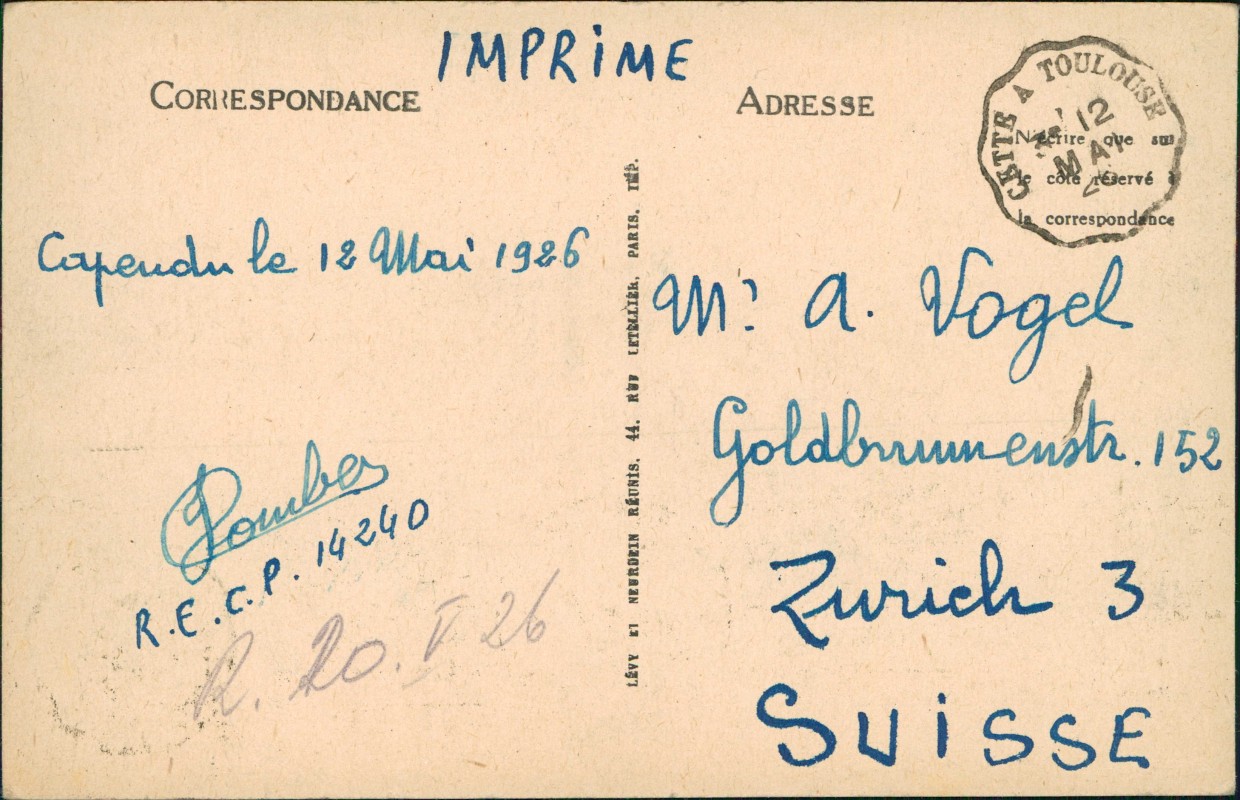 IMPRiME
CORRESPONDANCE
Capendu le 12 Mai 1926
R.E.C.P. 14240
R. 20. V 26
LÉVY ET NEURDEIN RÉUNIS. 44. RUE LETELLIER. PARIS. IMP.
ADRESSE
CETTE A TOULOUSE
12
MAI
26
N'écrire que sur
le côté réservé à
la correspondance
Mr. A. Vogel
Goldbrunnenstr. 152
Zurich 3
SUiSSE